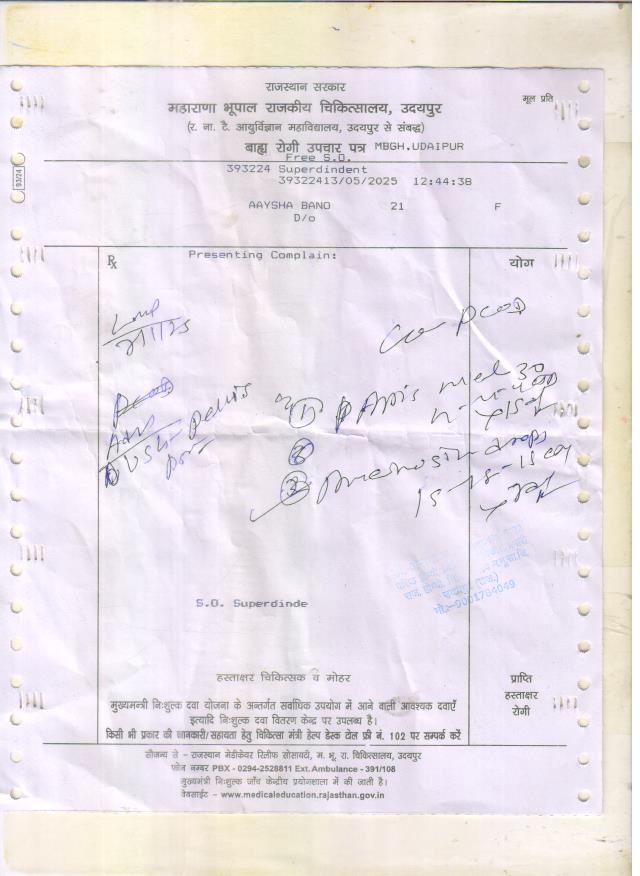 राजस्थान सरकार
मूल प्रति
महाराणा भूपाल राजकीय चिकित्सालय, उदयपुर
(र. ना. टै. आयुर्विज्ञान महाविद्यालय, उदयपुर से संबद्ध)
बाह्य रोगी उपचार पत्र MBGH.UDAIPUR
Free S.O.
93/24
393224 Superdindent
39322413/05/2025 12:44:38
AAYSHA BANO 21 F
D/o
℞ Presenting Complain:
योग
Lmp
c/o PCOD
Adv
USG - pelvis
① Apis mel 30
②
③ drops
15-15-15
S.O. Superdinde
मो.-9001784049
हस्ताक्षर चिकित्सक व मोहर
प्राप्ति
हस्ताक्षर
रोगी
मुख्यमन्त्री निःशुल्क दवा योजना के अन्तर्गत सर्वाधिक उपयोग में आने वाली आवश्यक दवाएँ
इत्यादि निःशुल्क दवा वितरण केन्द्र पर उपलब्ध है।
किसी भी प्रकार की जानकारी/सहायता हेतु चिकित्सा मंत्री हेल्प डेस्क टोल फ्री नं. 102 पर सम्पर्क करें
सौजन्य से - राजस्थान मेडीकेयर रिलीफ सोसायटी, म. भू. रा. चिकित्सालय, उदयपुर
फोन नम्बर PBX - 0294-2528811 Ext. Ambulance - 391/108
मुख्यमंत्री निःशुल्क जाँच केन्द्रीय प्रयोगशाला में की जाती है।
वेबसाईट - www.medicaleducation.rajasthan.gov.in